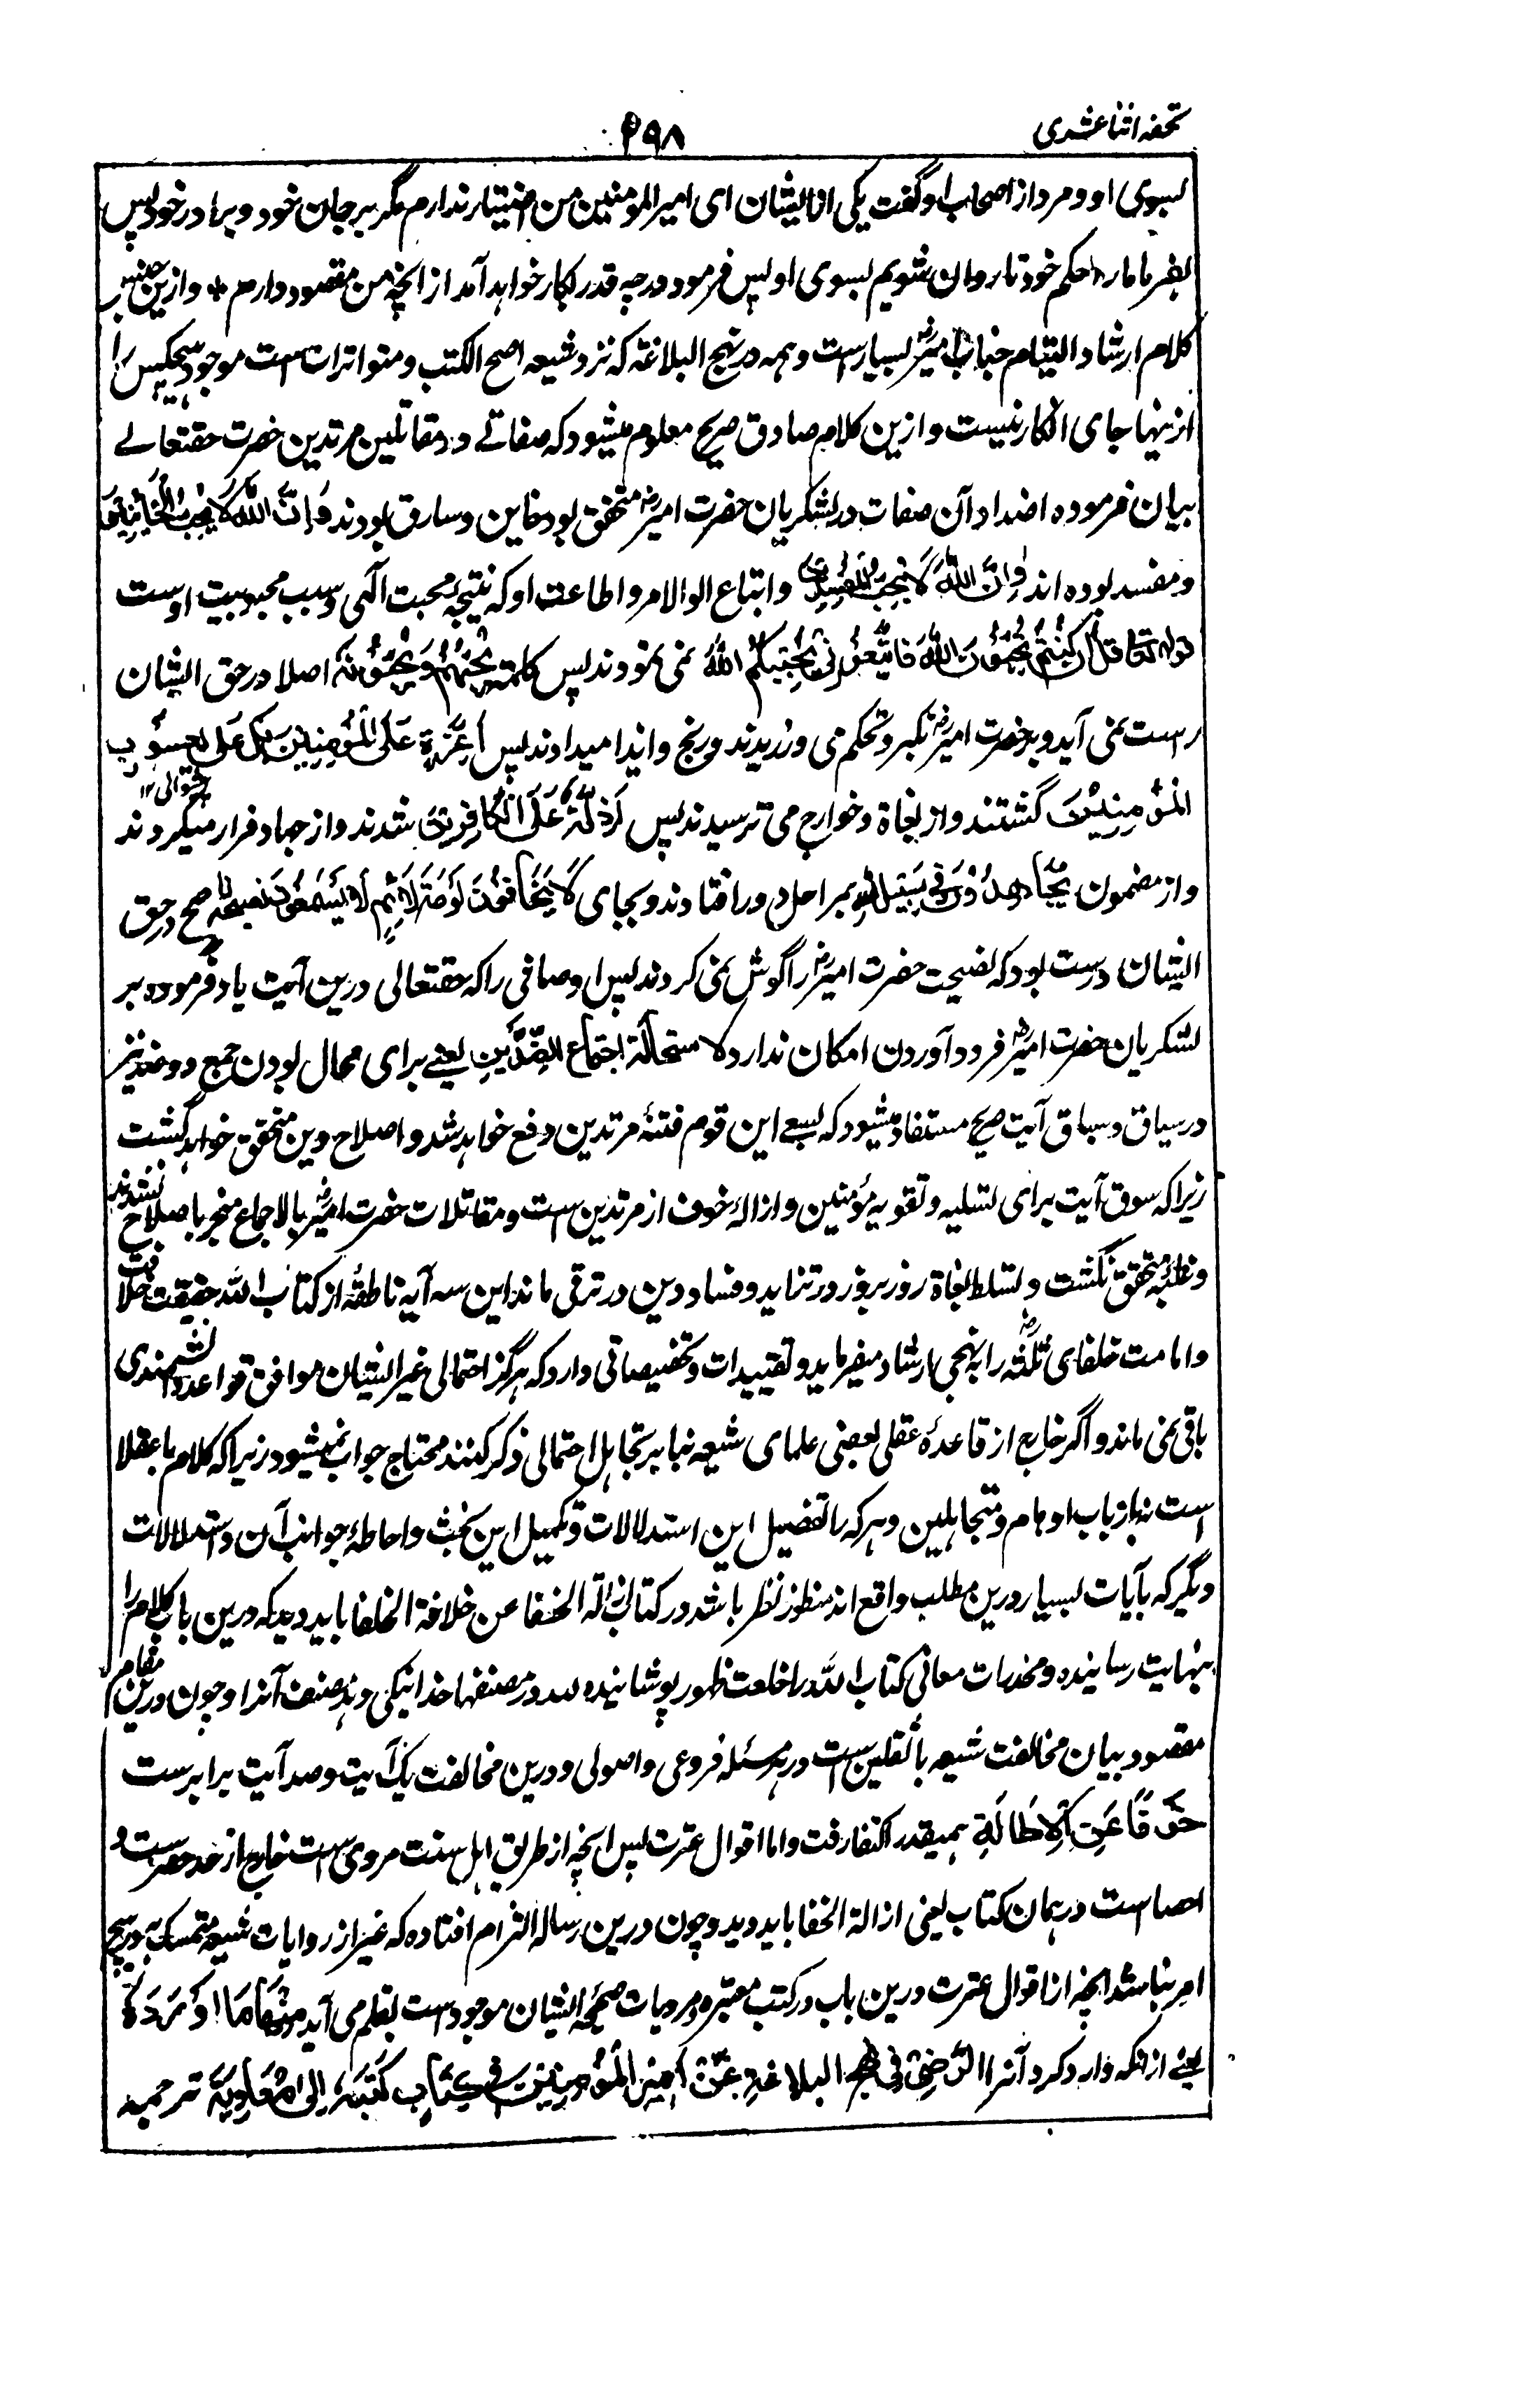 تحفه اثنا عشری
۲۹۸
بسوی او دو مرد از اصحاب او گفت یکی از ایشان ای امیر المومنین من اختیار ندارم مگر بر جان خود و برادر خود پس
بفرما ما را حکم خود تا روان شویم بسوی او پس فرمود و چه قدر بکار خواهد آمد از آنچه من مقصود دارم * و ازین جنس
کلام ارشاد التیام جناب امیر رض بسیار ست و همه در نهج البلاغة که نزد شیعه اصح الکتب و متواترات ست موجود هیچکس را
ازینها جای انکار نیست و ازین کلام صادق صریح معلوم میشود که صفاتے که در مقاتلین مرتدین حضرت حقتعالے
بیان فرموده اضداد آن صفات در لشکریان حضرت امیر رض متحقق بود خاین و سارق بودند وَاِنَّ اللّٰهَ لَا یُحِبُّ الْخَائِنِیْنَ
و مفسد بوده اند وَاِنَّ اللّٰهَ لَا یُحِبُّ الْمُفْسِدِیْنَ و اتباع اولوالامر و اطاعت او که نتیجه محبت الٰهی و سبب محبوبیت اوست
قوله تعا قُلْ اِنْ کُنْتُمْ تُحِبُّوْنَ اللّٰهَ فَاتَّبِعُوْنِیْ یُحْبِبْکُمُ اللّٰهُ نمی نمودند پس کلمۀ یُحِبُّهُمْ وَیُحِبُّوْنَهٗ اصلا در حق ایشان
راست نمی آید و بحضرت امیر رض تکبر و تحکم می ورزیدند و رنج و ایذا میدادند پس اَعِزَّةٍ عَلَی الْمُؤْمِنِیْنَ بَلْ عَلٰی یَعْسُوْبِ
الْمُؤْمِنِیْنَ گشتند و از بغاة و خوارج می ترسیدند پس اَذِلَّةٍ عَلَی الْکَافِرِیْنَ شدند و از جهاد فرار میکردند
و از مضمون یُجَاهِدُوْنَ فِیْ سَبِیْلِ اللّٰهِ بمراحل دور افتادند و بجای لَا یَخَافُوْنَ لَوْمَةَ لَائِمٍ لَا یَسْمَعُوْنَ نصیحة ناصح در حق
ایشان درست بود که نصیحت حضرت امیر رض را گوش نمی کردند پس اوصافی را که حقتعالی درین آیت یاد فرموده بر
لشکریان حضرت امیر رض فرود آوردن امکان ندارد لا ستحالة اجتماع الضِّدَّیْنِ یعنے برای محال بودن جمع دو ضد نیز
در سیاق و سباق آیت صریح مستفاد میشود که بسعے این قوم فتنۀ مرتدین دفع خواهد شد و اصلاح دین متحقق خواهد گشت
زیرا که سوق آیت برای تسلیه و تقویه مؤمنین و ازالۀ خوف از مرتدین ست و مقاتلات حضرت امیر رض بالاجماع منجر باصلاح نشدند
و غلبه متحقق نگشت و تسلط بغاة روز بروز در تزاید و فساد دین در ترقی ماند این سه آیه ناطقه از کتاب الله حقیقت خلافت
و امامت خلفای ثلثه رض را به نهجی ارشاد میفرماید و تقییدات و تخصیصاتی دارد که هرگز احتمالی غیر ایشان موافق قواعد دانشمندی
باقی نمی ماند و اگر خارج از قاعدۀ عقلی بعضی علمای شیعه بنابر تجاهل احتمالی ذکر کنند محتاج جواب نمیشود زیرا که کلام با عقلا
است نه با ارباب اوهام و متجاهلین و هر که را تفصیل این استدلالات و تکمیل این بحث و احاطۀ جوانب آن و استدلالات
دیگر که بآیات بسیار درین مطلب واقع اند منظور نظر باشد در کتاب ازالة الخفا عن خلافة الخلفا باید دید که درین باب کلام را
بنهایت رسانیده و مخدرات معانی کتاب الله را خلعت ظهور پوشانیده لله در مصنفها خدا نیکی دهد مصنف آنرا و چون درین مقام
مقصود بیان مخالفت شیعه با ثقلین ست در هر مسئله فروعی و اصولی و درین مخالفت یک آیت و صد آیت برابر ست
خَوْفًا عَنِ الْاِطَالَةِ بهمیقدر اکتفا رفت و اما اقوال عترت پس آنچه از طریق اهل سنت مروی ست خارج از حد حصر ست و
احصا است در همان کتاب یعنی ازالة الخفا باید دید و چون درین رساله التزام افتاده که غیر از روایات شیعه متمسک به در هیچ
امر نباشد آنچه از اقوال عترت درین باب در کتب معتبره و مرویات صحیحه ایشان موجود ست بقلم می آید فمنها مَا اَوْرَدَهٗ
یعنے ازانکه وارد کرد آنرا الرَّضِیُّ فِیْ نهج البلاغةِ عَنْ اَمِیْرِ الْمُؤْمِنِیْنَ فِیْ کِتَابٍ کَتَبَهٗ اِلٰی مُعَاوِیَةَ ترجمه